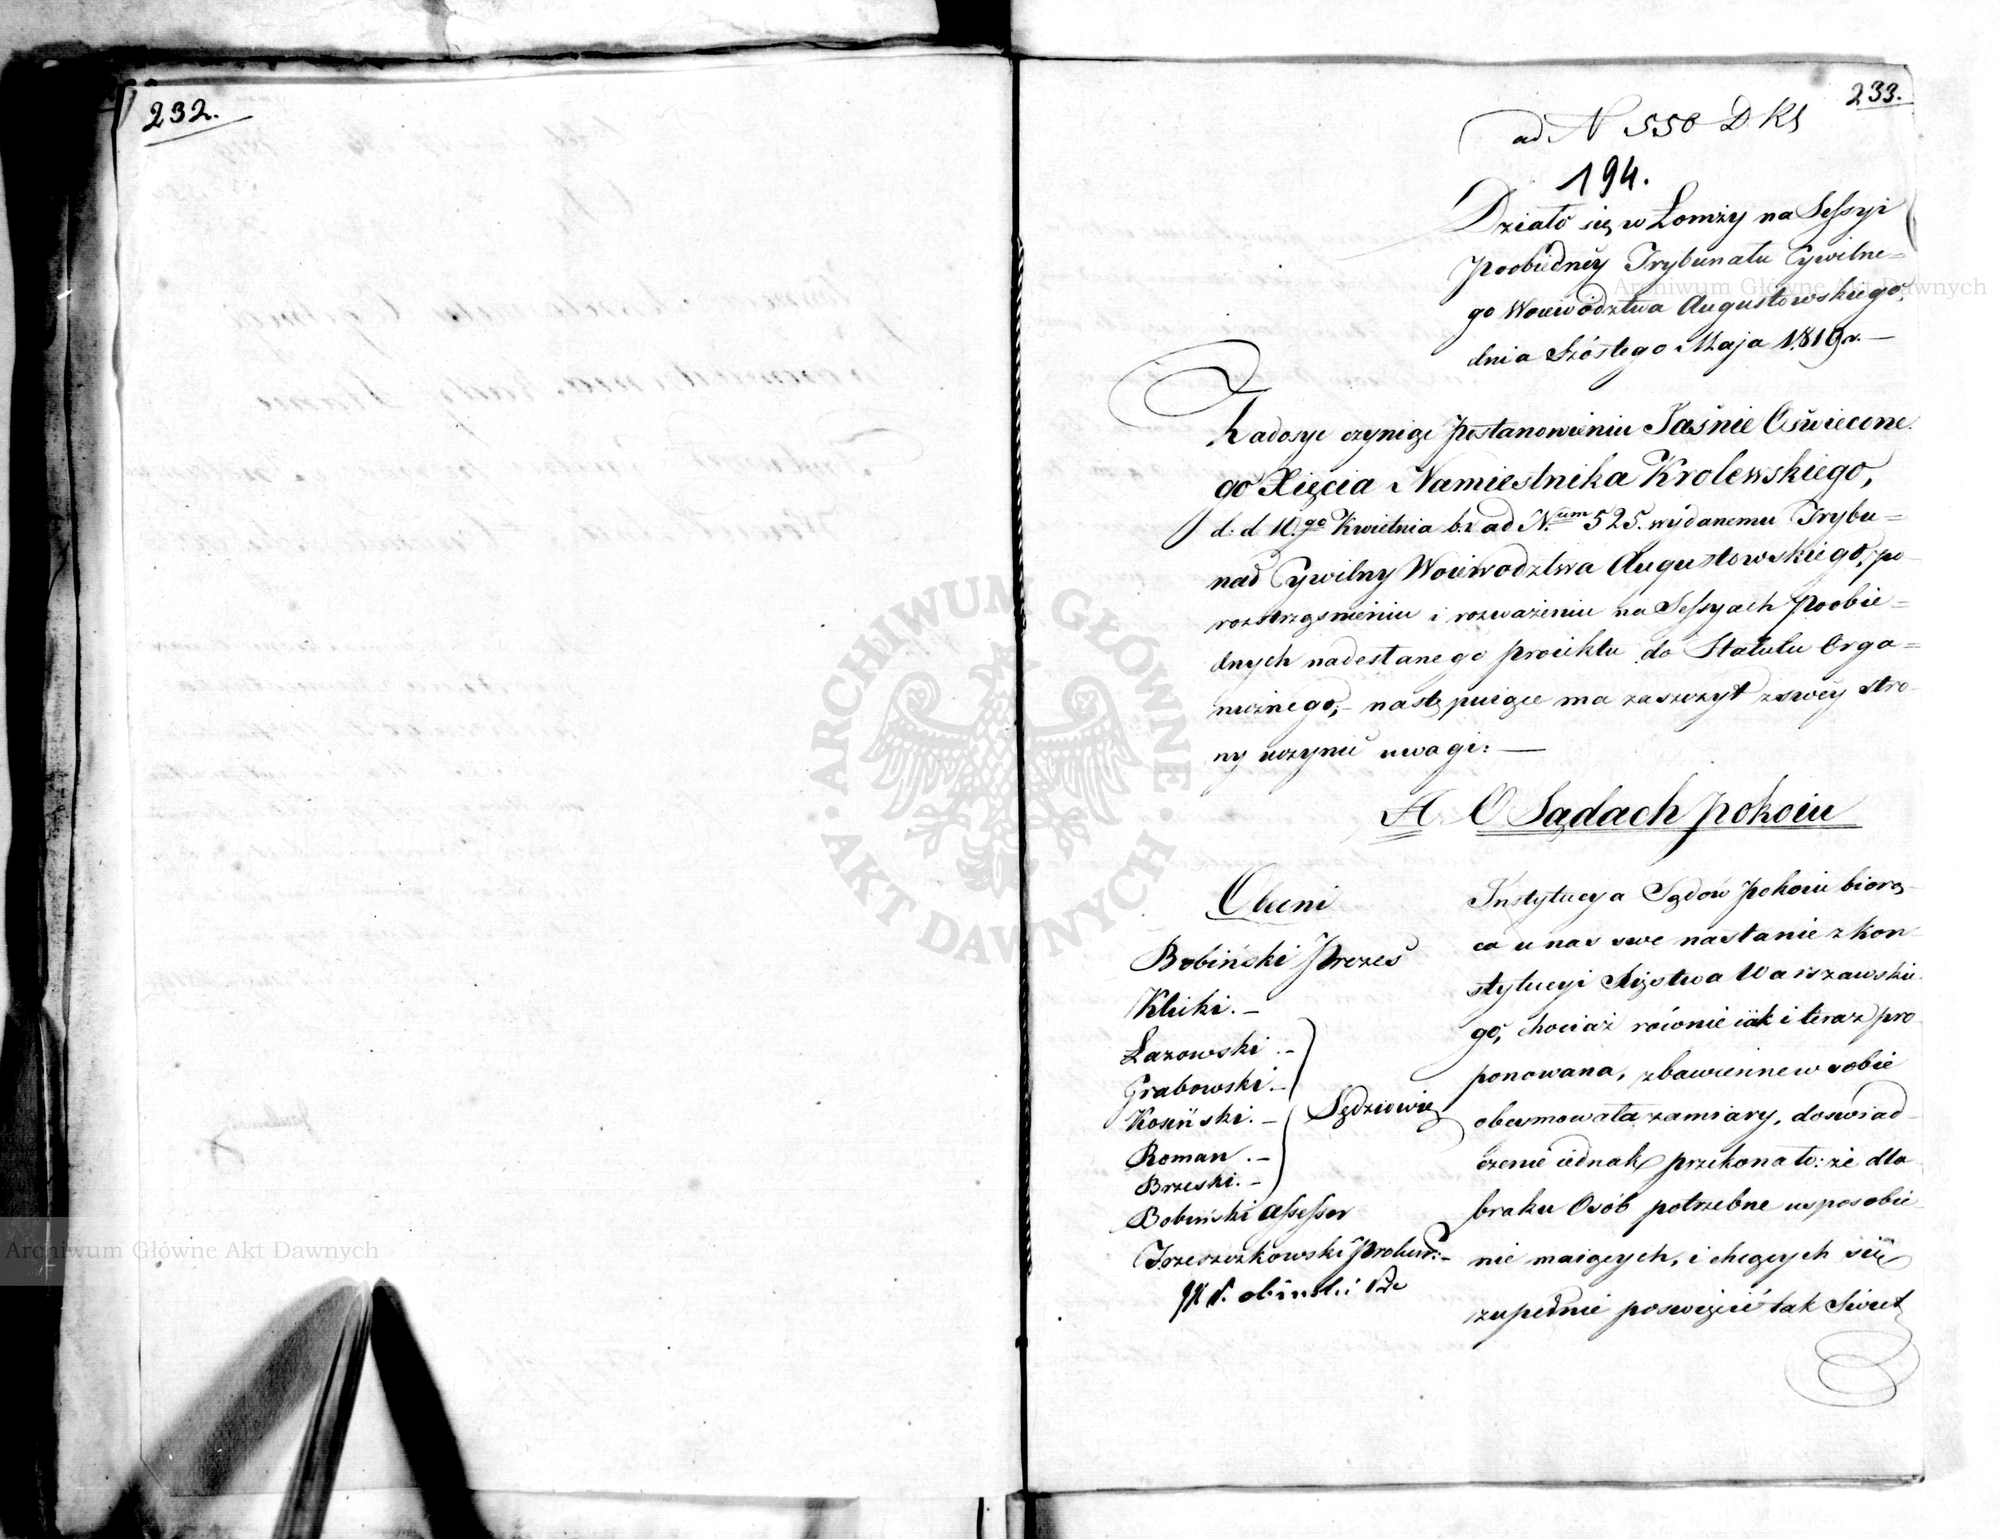 232.
233.
ad N 550 D KS
194.
Działo się w Łomży na Sessyi
Poobiedney Trybunału Cywilne=
go Woiewództwa Augustowskiego,
dnia Szóstego Maja 1819 r. —
Zadosyc czyniąc Postanowieniu Jaśnie Oświecone
go Xięcia Namiestnika Krolewskiego,
d: d 10.go Kwietnia b.r ad N.um 525. wydanemu Trybu=
nał Cywilny Woiewodztwa Augustowskiego, po
rozstrząsnieniu i rozważeniu na Sessyach Poobie=
dnych nadesłanego proiektu do Statutu Orga=
nicznego, następuiące ma zaszczyt z swey stro
ny uczynić uwagi: —
A. O Sądach Pokoiu
Obecni
Bobiński Prezes
Klicki. —
Łazowski. —
Grabowski. —
Kosiński. —
Roman. —
Brzeski. —
Sędziowie
Bobiński Assessor
Trzeszczkowski Prokur: —
Instytucya Sądów Pokoiu biorą
ca u nas swe nastanie z Kon
stytucyi Xięstwa Warszawskie
go, chociaż równie iak i teraz pro
ponowana, zbawienne w sobie
obeymowała zamiary, doswiad
czenie iednak przekonało: że dla
braku Osób potrzebne usposobie
nie maiących, i chcących się
zupełnie poswięcić tak Swięt
Archiwum Główne Akt Dawnych
Archiwum Główne Akt Dawnych
ARCHIWUM GŁÓWNE AKT DAWNYCH